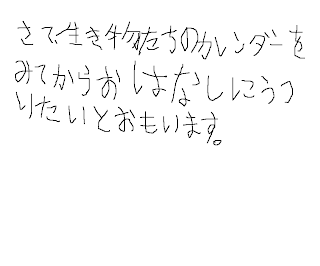 さて、生き物たちのカレンダーを
みてからおはなしにうつ
りたいとおもいます。